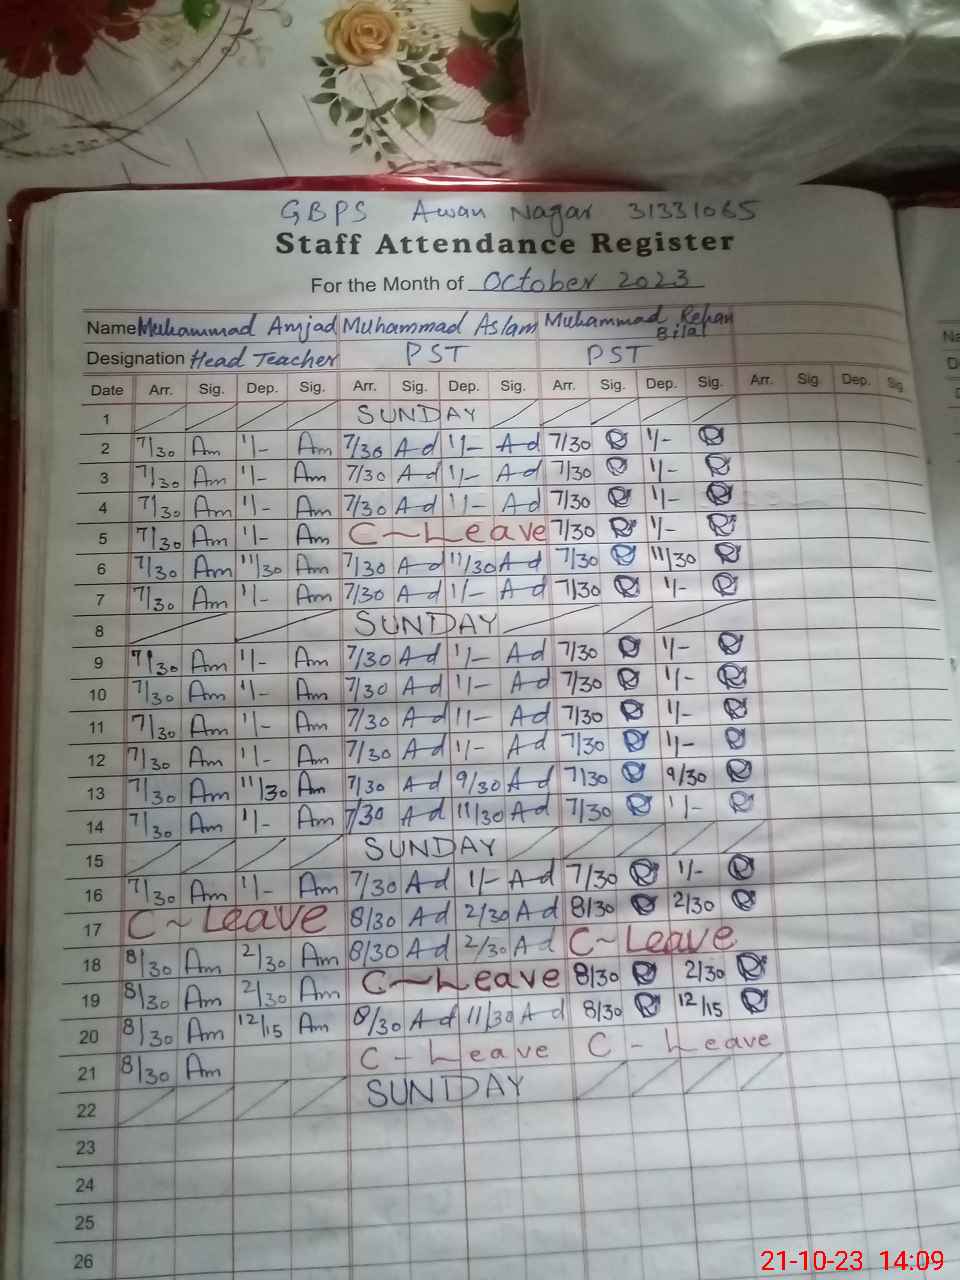 GBPS Awan Nagar 31331065
Staff Attendance Register
For the Month of October 2023
Name Muhammad Amjad Muhammad Aslam Muhammad Rehan Bilal
Designation Head Teacher PST PST
Date Arr. Sig. Dep. Sig. Arr. Sig. Dep. Sig. Arr. Sig. Dep. Sig. Arr. Sig. Dep. Sig.
1 SUNDAY
2 7/30 Am 1/- Am 7/30 A-d 1/- A-d 7/30 R 1/- R
3 7/30 Am 1/- Am 7/30 A-d 1/- A-d 7/30 R 1/- R
4 7/30 Am 1/- Am 7/30 A-d 1/- A-d 7/30 R 1/- R
5 7/30 Am 1/- Am C-Leave 7/30 R 1/- R
6 7/30 Am 11/30 Am 7/30 A-d 11/30 A-d 7/30 R 11/30 R
7 7/30 Am 1/- Am 7/30 A-d 1/- A-d 7/30 R 1/- R
8 SUNDAY
9 7/30 Am 1/- Am 7/30 A-d 1/- A-d 7/30 R 1/- R
10 7/30 Am 1/- Am 7/30 A-d 1/- A-d 7/30 R 1/- R
11 7/30 Am 1/- Am 7/30 A-d 1/- A-d 7/30 R 1/- R
12 7/30 Am 1/- Am 7/30 A-d 1/- A-d 7/30 R 1/- R
13 7/30 Am 11/30 Am 7/30 A-d 9/30 A-d 7/30 R 9/30 R
14 7/30 Am 1/- Am 7/30 A-d 11/30 A-d 7/30 R 1/- R
15 SUNDAY
16 7/30 Am 1/- Am 7/30 A-d 1/- A-d 7/30 R 1/- R
17 C-Leave 8/30 A-d 2/30 A-d 8/30 R 2/30 R
18 8/30 Am 2/30 Am 8/30 A-d 2/30 A-d C-Leave
19 8/30 Am 2/30 Am C-Leave 8/30 R 2/30 R
20 8/30 Am 12/15 Am 8/30 A-d 11/30 A-d 8/30 R 12/15 R
21 8/30 Am C-Leave C-Leave
22 SUNDAY
23
24
25
26
21-10-23 14:09